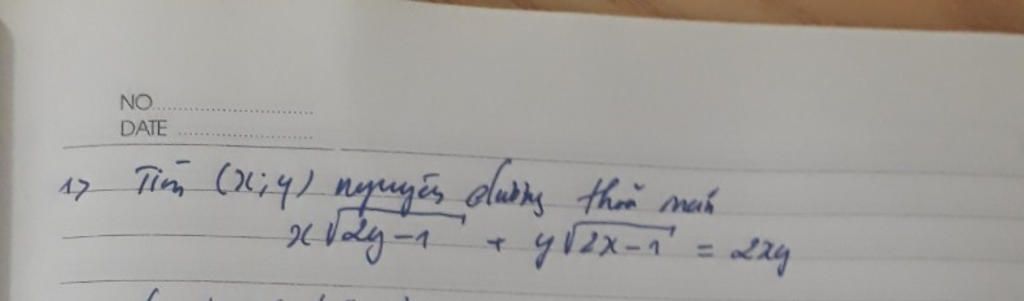 NO
DATE
1) Tìm (x; y) nguyên dương thoả mãn
x√2y-1 + y√2x-1 = 2xy